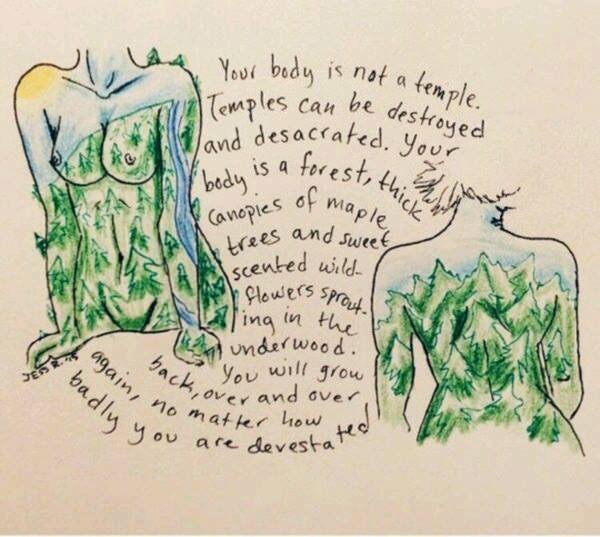 Your body is not a temple.
Temples can be destroyed
and desacrated. Your
body is a forest, thick
canopies of maple
trees and sweet
scented wild-
flowers sprout-
ing in the
underwood.
You will grow
back, over and over
again, no matter how
badly you are devestated
JESS R. '15